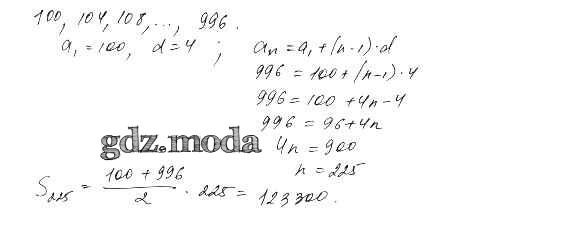 100, 104, 108, ..., 996.
a₁ = 100, d = 4 ; aₙ = a₁ + (n-1)·d
996 = 100 + (n-1)·4
996 = 100 + 4n - 4
996 = 96 + 4n
gdz.moda
4n = 900
n = 225
S₂₂₅ = (100 + 996)/2 · 225 = 123300.